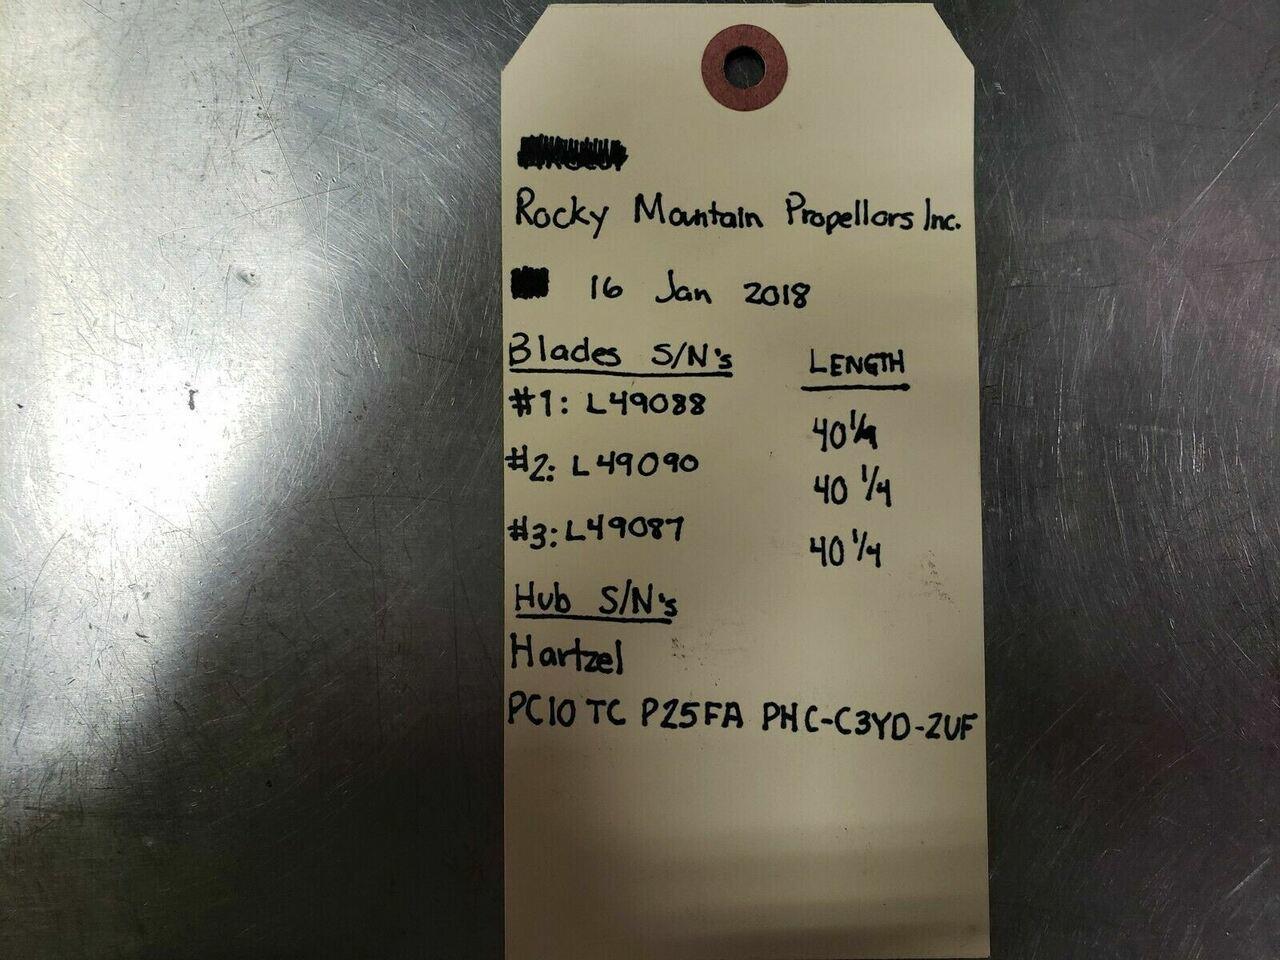 Rocky Mountain Propellors Inc.
16 Jan 2018
Blades S/N's LENGTH
#1: L49088 40 1/4
#2: L49090 40 1/4
#3: L49087 40 1/4
Hub S/N's
Hartzel
PC10 TC P25FA PHC-C3YD-2UF